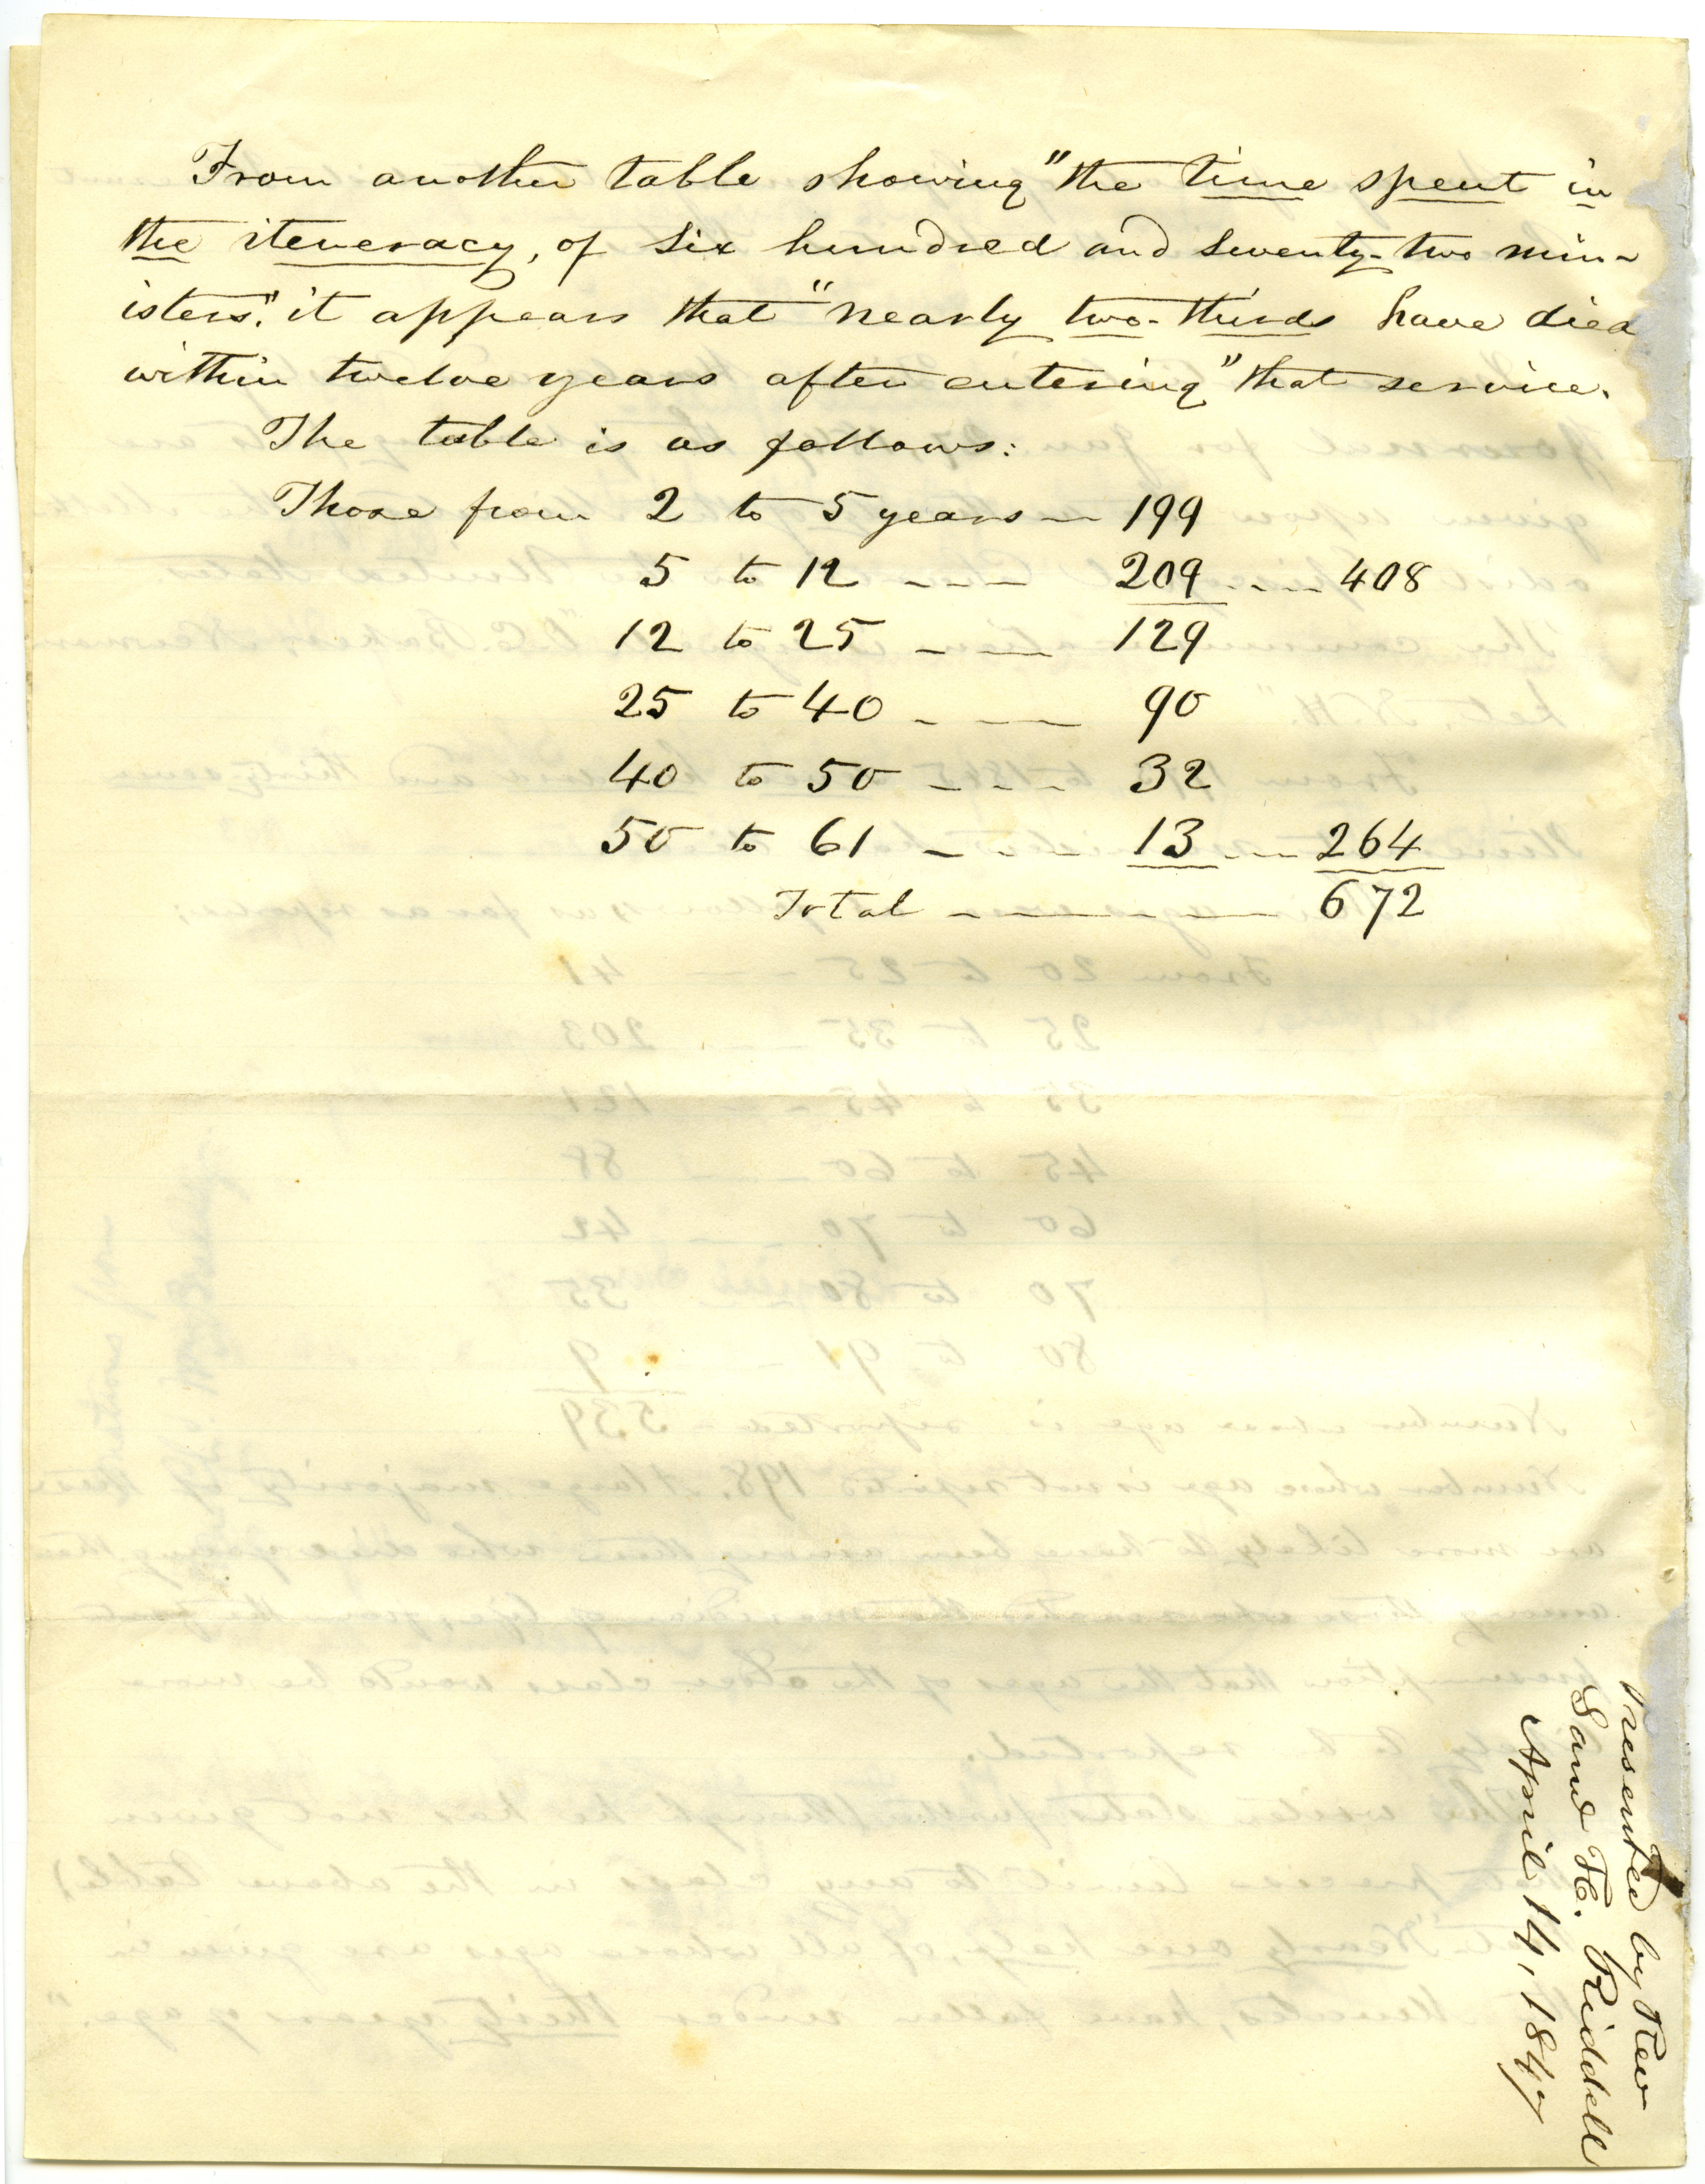 From another table showing "the time spent in
the iteneracy, of six hundred and seventy-two min-
isters", it appears that "nearly two-thirds have died
within twelve years after entering" that service.
The table is as follows:
Those from 2 to 5 years — 199
5 to 12 --- 209 ---- 408
12 to 25 --- 129
25 to 40 --- 90
40 to 50 ---- 32
50 to 61 ---- 13 ---- 264
Total ———— 672
Presented by Rev
Saml H. Riddell
April 14, 1847